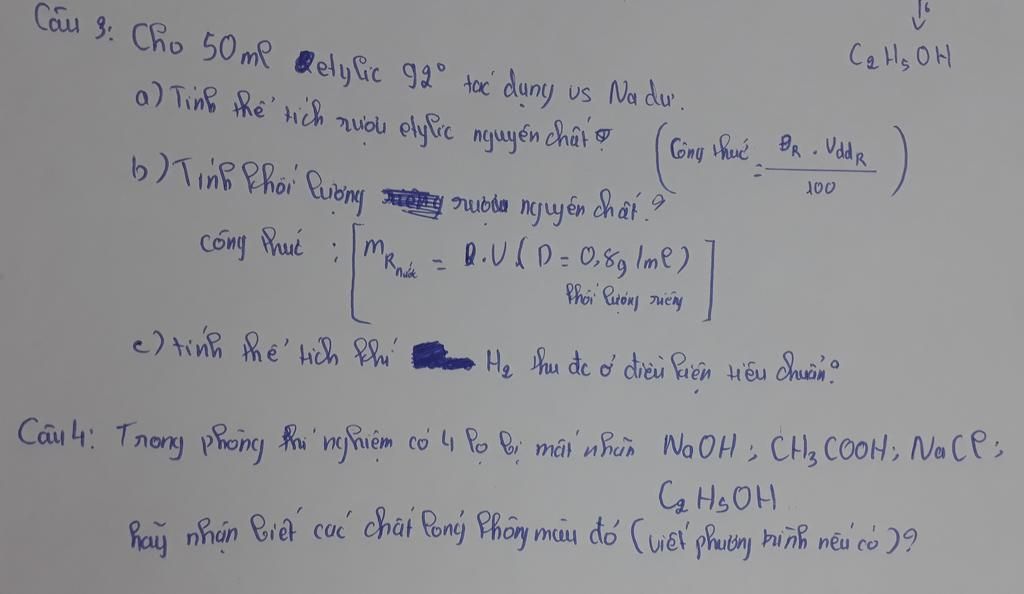 Câu 3: Cho 50ml etylic 92° tác dụng vs Na dư.
C₂H₅OH
a) Tính thể tích rượu etylic nguyên chất? (Công thức = ĐR . VddR / 100)
b) Tính khối lượng rượu nguyên chất?
công thức : [mR = D.V (D = 0,8g/ml)]
khối lượng riêng
c) tính thể tích khí H₂ thu đc ở điều kiện tiêu chuẩn?
Câu 4: Trong phòng thí nghiệm có 4 lọ bị mất nhãn NaOH; CH₃COOH; NaCl;
C₂H₅OH
hãy nhận biết các chất lỏng không màu đó (viết phương trình nếu có)?